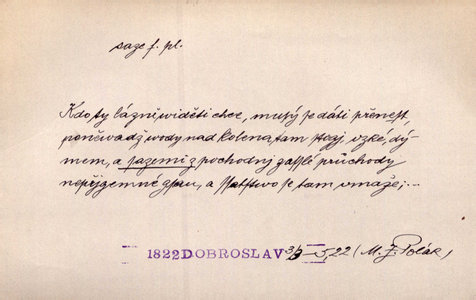 saze f. pl.
Kdo ty lázně widěti chce, musý se dáti přenest,
poněwadž wody nad kolena tam stogj, vzké, dý-
mem, a sazemi z pochodnj zassslé průchody
nepřjgemné gsau, a Ssatstwo se tam vmaže;...
1822 DOBROSLAV 3/3 - 5,22 (M. Z. Polák)